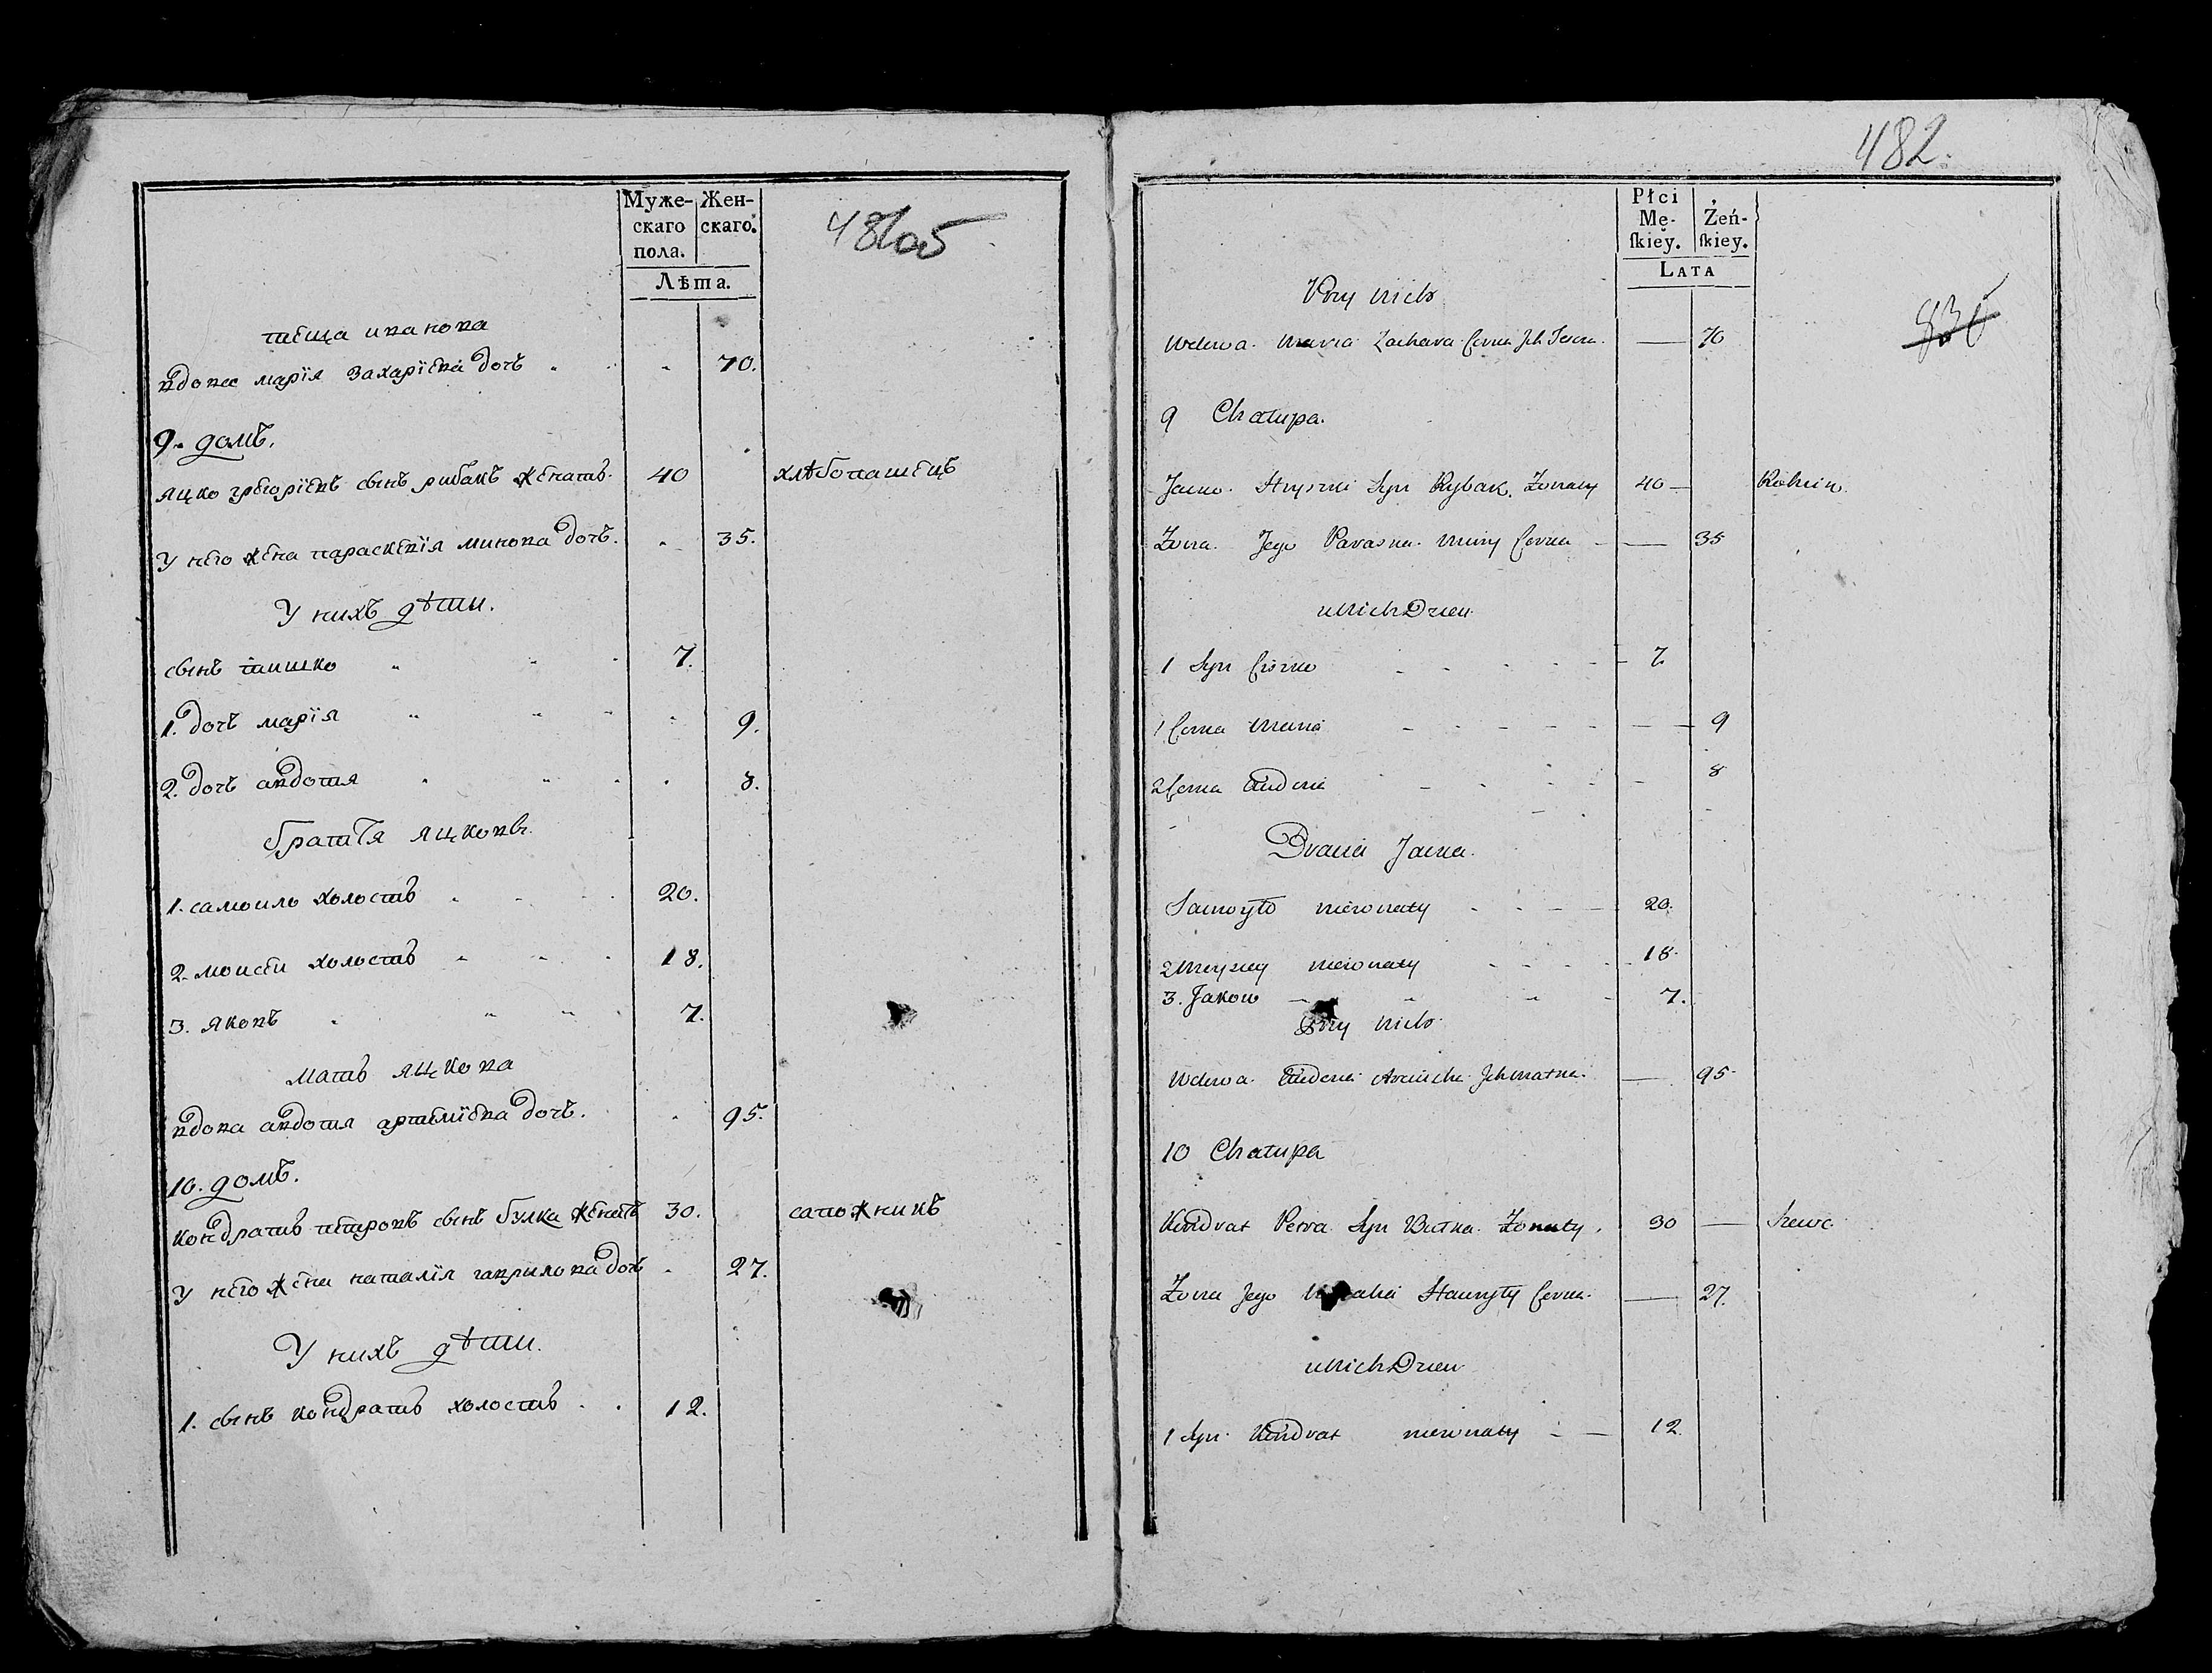 Муже-
скаго
пола.
Жен-
скаго.
Лѣта.
481об
теща иванова
вдова марія захаріева дочь 70.
9. домъ.
яцко григоріевъ сынъ рибакъ женатъ. 40 хлѣбопашецъ
У него жена параскевія минова дочь. 35.
У нихъ дѣти.
сынъ тишко 7.
1. дочь марія 9.
2. дочь авдотия 8.
братія яцковы
1. самоило холостъ 20.
2. моисеи холостъ 18.
3. яковъ 7.
мать яцкова
вдова авдотия артеміева дочь. 95.
10. домъ.
кондратъ петровъ сынъ булка женатъ 30. сапожникъ
У него жена наталія гаврилова дочь 27.
У нихъ дѣти.
1. сынъ кондратъ холостъ 12.
482.
Płci
Mę-
skiey.
Żeń-
skiey.
LATA
Przy nich
Wdowa Maria Zachara Corka Ich 70
9 Chałupa.
Jacko Syn Rybak. Zonaty 40 Rolnik
Zona Jego Paraska Miny Corka 35
u Nich Dzieci
1 Syn 7
1 Corka Maria 9
2 Corka 8
Bracia Jacka.
Samoyło niezonaty 20.
2 Moyzey niezonaty 18.
3. Jakow 7.
Przy nich
Wdowa Ich Matka. 95
10 Chałupa
Kindrat Petra Syn Bułka Zonaty. 30 Szewc
Zona Jego Hauryły Corka 27.
u Nich Dzieci
1 Syn Kindrat niezonaty 12.